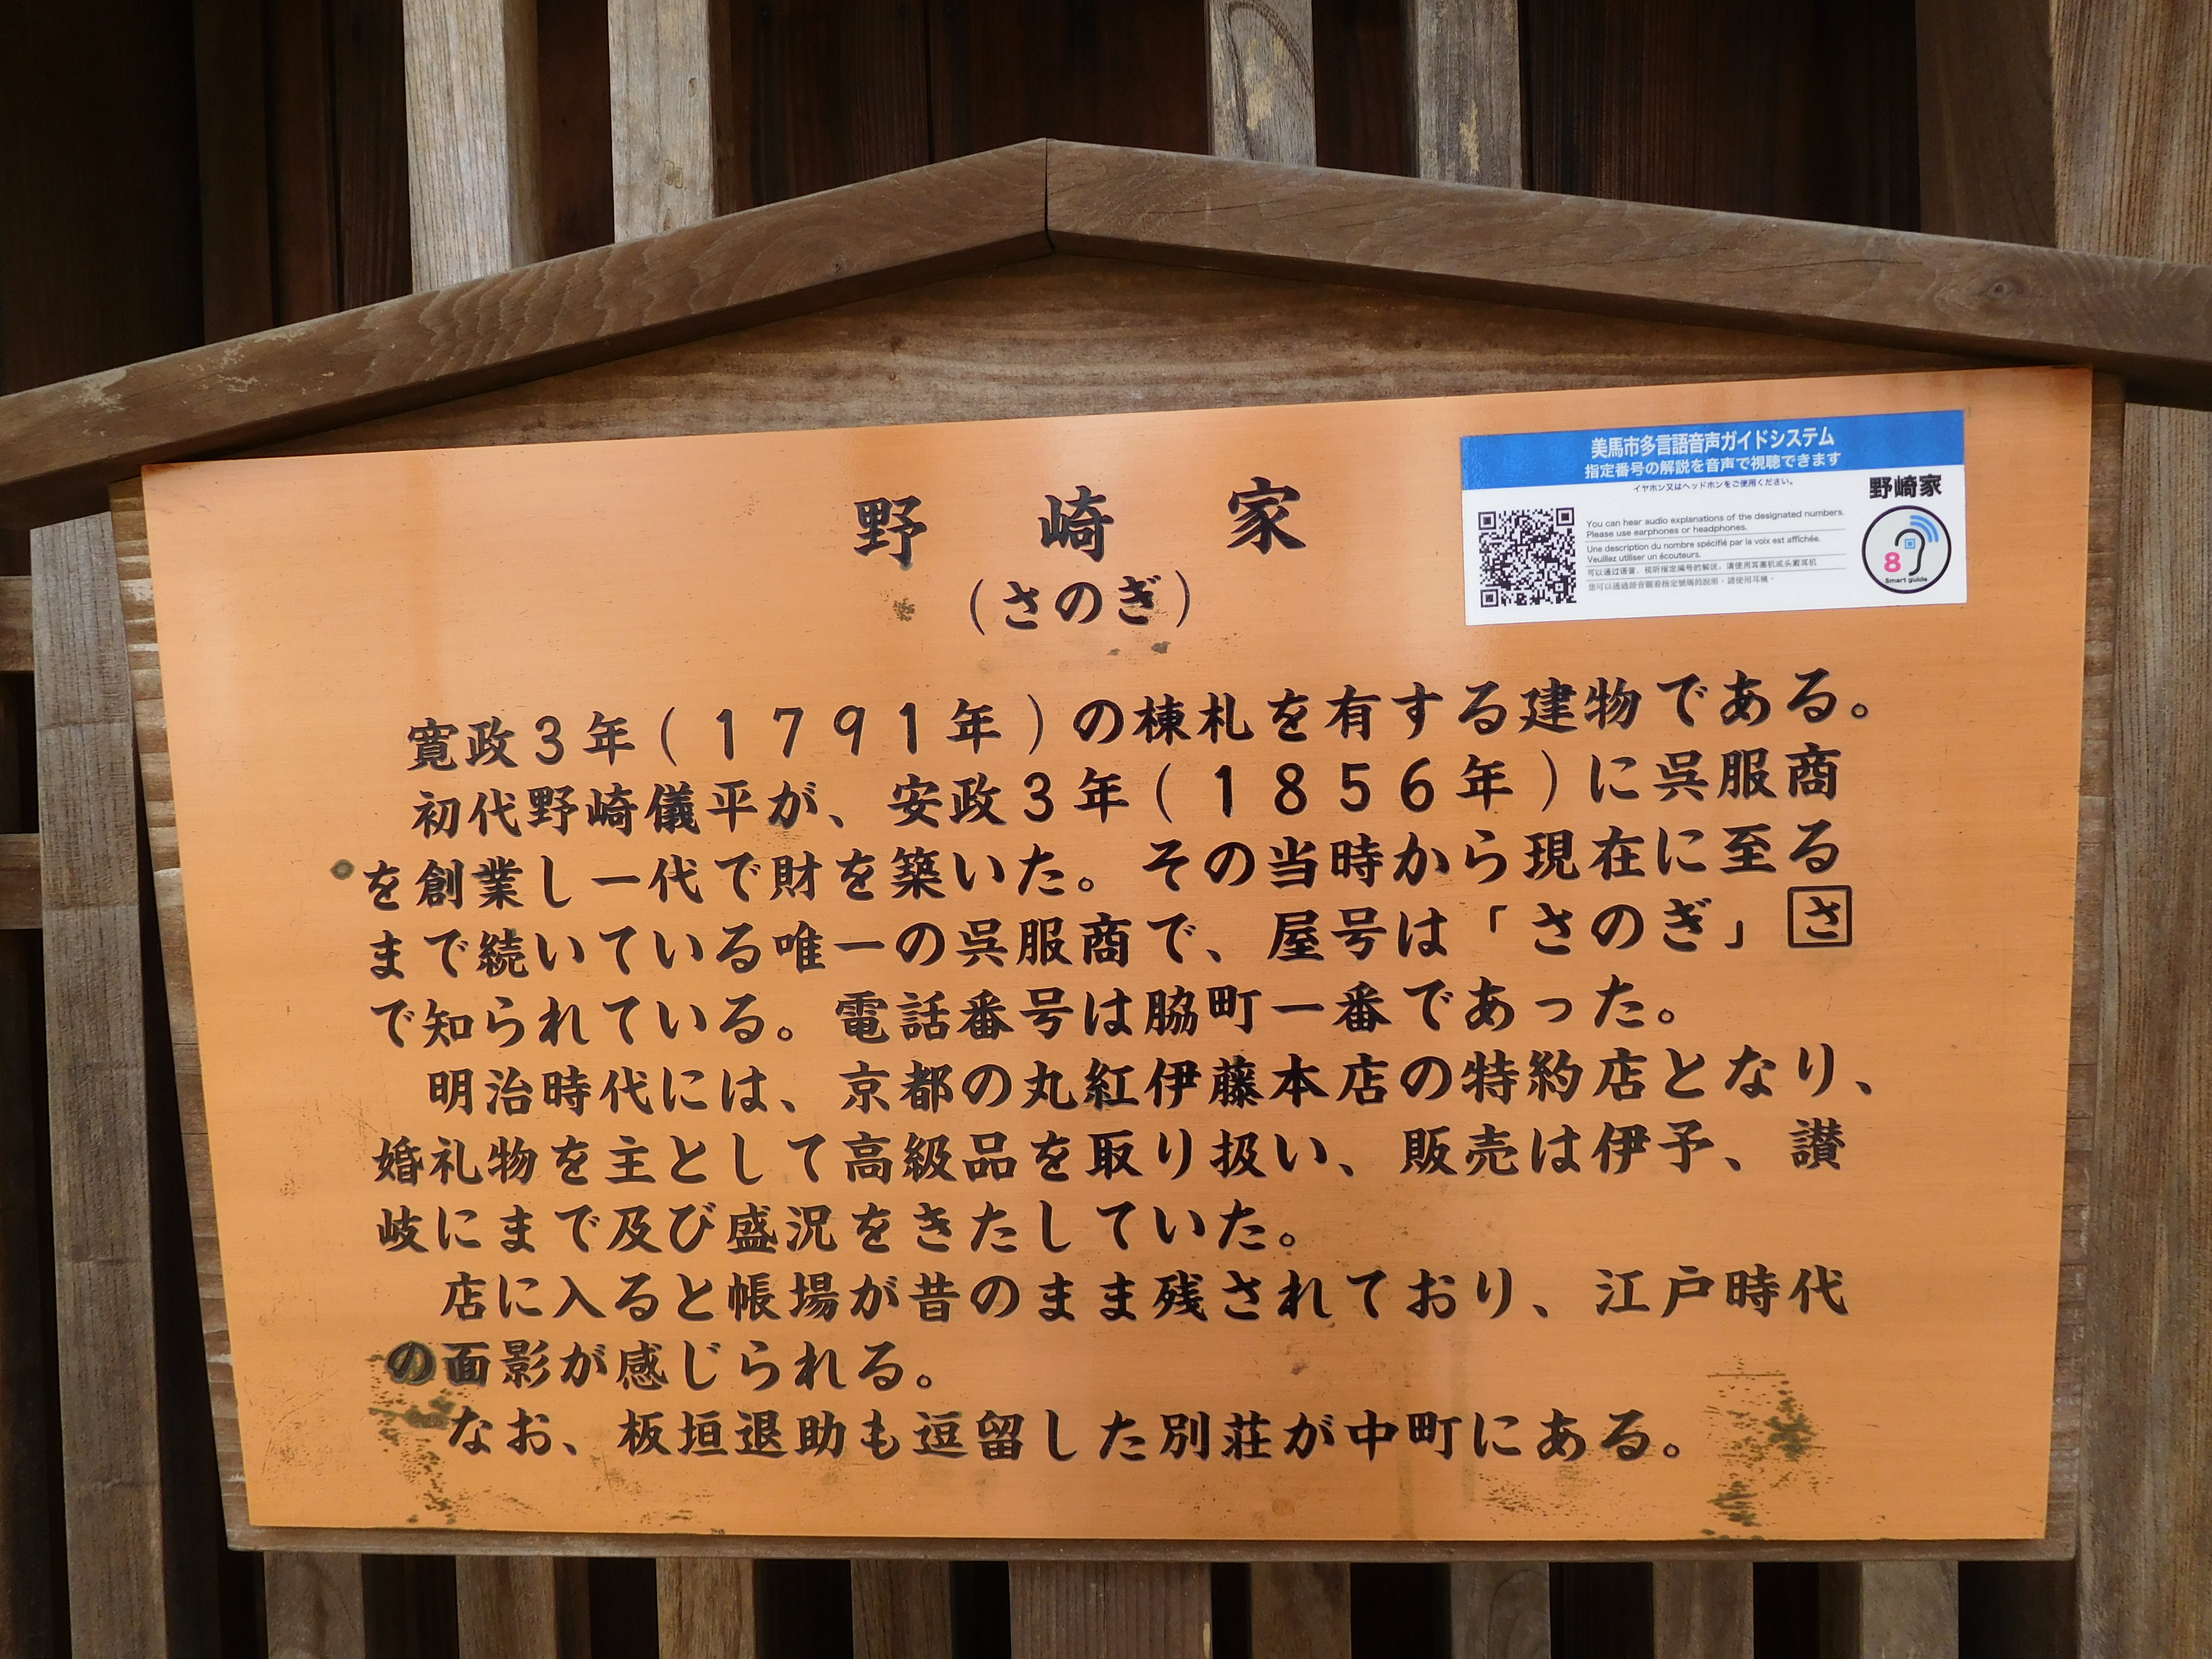 野崎家
(さのぎ)
美馬市多言語音声ガイドシステム
指定番号の解説を音声で視聴できます
イヤホン又はヘッドホンをご使用ください。
野崎家
You can hear audio explanations of the designated numbers.
Please use earphones or headphones.
Une description du nombre spécifié par la voix est affichée.
Veuillez utiliser un écouteurs.
可以通过语音、视听指定编号的解说，请使用耳塞机或头戴耳机
您可以通過語音觀看指定號碼的說明，請使用耳機。
8
Smart guide
寛政3年(1791年)の棟札を有する建物である。
初代野崎儀平が、安政3年(1856年)に呉服商
を創業し一代で財を築いた。その当時から現在に至る
まで続いている唯一の呉服商で、屋号は「さのぎ」さ
で知られている。電話番号は脇町一番であった。
明治時代には、京都の丸紅伊藤本店の特約店となり、
婚礼物を主として高級品を取り扱い、販売は伊予、讃
岐にまで及び盛況をきたしていた。
店に入ると帳場が昔のまま残されており、江戸時代
の面影が感じられる。
なお、板垣退助も逗留した別荘が中町にある。